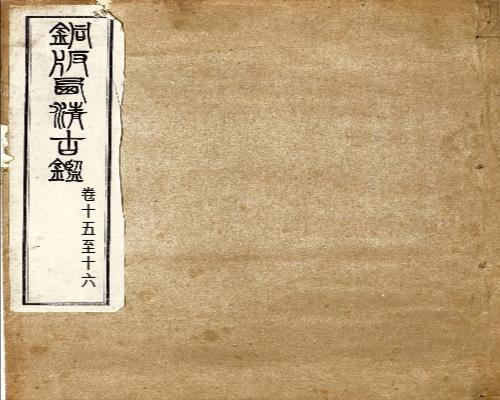 銅版西清古鑑
卷十五至十六